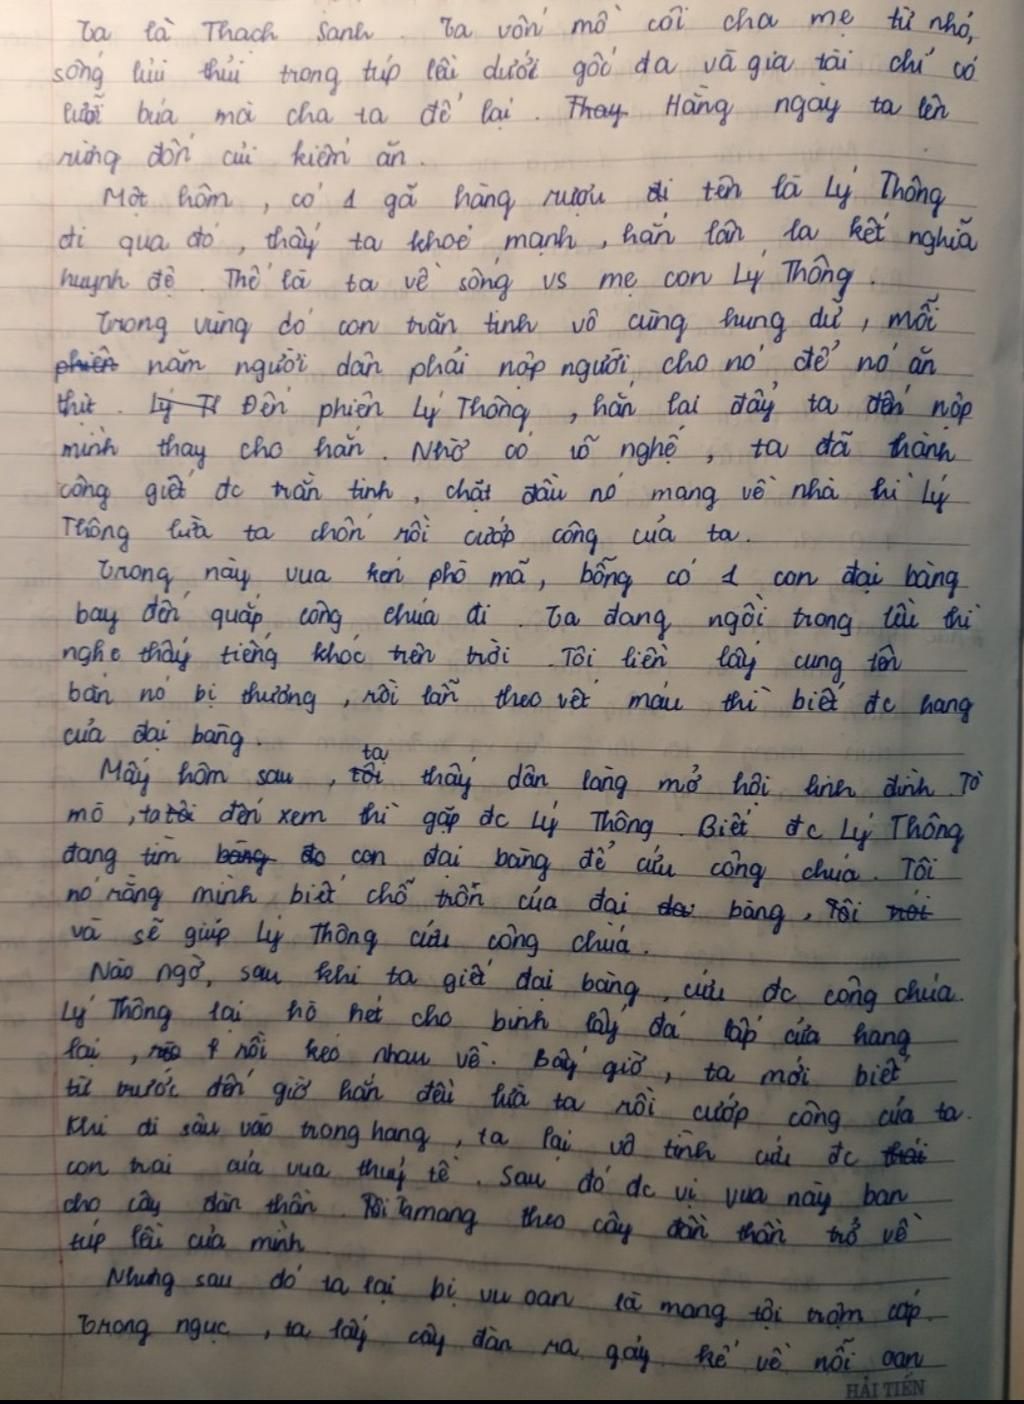 Ta là Thạch Sanh. Ta vốn mồ côi cha mẹ từ nhỏ,
sống lủi thủi trong túp lều dưới gốc đa và gia tài chỉ có
lưỡi búa mà cha ta để lại. Thay Hằng ngày ta lên
rừng đốn củi kiếm ăn.
Một hôm, có 1 gã hàng rượu đi tên là Lý Thông
đi qua đó, thấy ta khoẻ mạnh, hắn lân la kết nghĩa
huynh đệ. Thế là ta về sống vs mẹ con Lý Thông.
Trong vùng có con trăn tinh vô cùng hung dữ, mỗi
phiên năm người dân phải nộp người cho nó để nó ăn
thịt. Lý T Đến phiên Lý Thông, hắn lại đẩy ta đến nộp
mình thay cho hắn. Nhờ có võ nghệ, ta đã thành
công giết đc trăn tinh, chặt đầu nó mang về nhà thì Lý
Thông lừa ta chốn rồi cướp công của ta.
Trong này vua kén phò mã, bỗng có 1 con đại bàng
bay đến quắp công chúa đi. Ta đang ngồi trong lều thì
nghe thấy tiếng khóc trên trời. Tôi liền lấy cung tên
bắn nó bị thương, rồi lần theo vết máu thì biết đc hang
của đại bàng.
ta
Mấy hôm sau, tôi thấy dân làng mở hội linh đình. Tò
mò, ta tôi đến xem thì gặp đc Lý Thông. Biết đc Lý Thông
đang tìm bàng đo con đại bàng để cứu công chúa. Tôi
nó rằng mình biết chỗ trốn của đại da bàng, Tôi nói
và sẽ giúp Lý Thông cứu công chúa.
Nào ngờ, sau khi ta giết đại bàng, cứu đc công chúa.
Lý Thông lại hô hét cho binh lấy đá lấp cửa hang
lại, rồi kéo nhau về. Bấy giờ, ta mới biết
từ trước đến giờ hắn đều lừa ta rồi cướp công của ta.
Khi đi sâu vào trong hang, ta lại vô tình cứu đc thái
con trai của vua thuỷ tề. Sau đó đc vị vua này ban
cho cây đàn thần. Tôi Ta mang theo cây đàn thần trở về
túp lều của mình
Nhưng sau đó ta lại bị vu oan là mang tội trộm cắp.
Trong ngục, ta lấy cây đàn ra gảy kể về nỗi oan
HẢI TIẾN